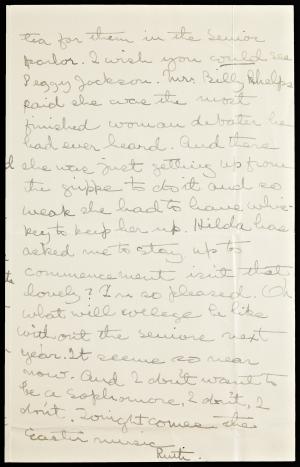 tea for them in the Senior
parlor. I wish you could see
Peggy Jackson. Mrs Billy Phelps
said she was the most
finished woman debater he
had ever heard. And there
she was just getting up from
the grippe to do it and so
weak she had to have whis-
key to keep her up. Hilda has
asked me to stay up to
commencement isn't that
lovely? I'm so pleased. Oh
what will college be like
without the seniors next
year. It seems so near
now. And I don't want to
be a Sophomore, I don't, I
don't. Tonight comes the
Easter music
Ruth.